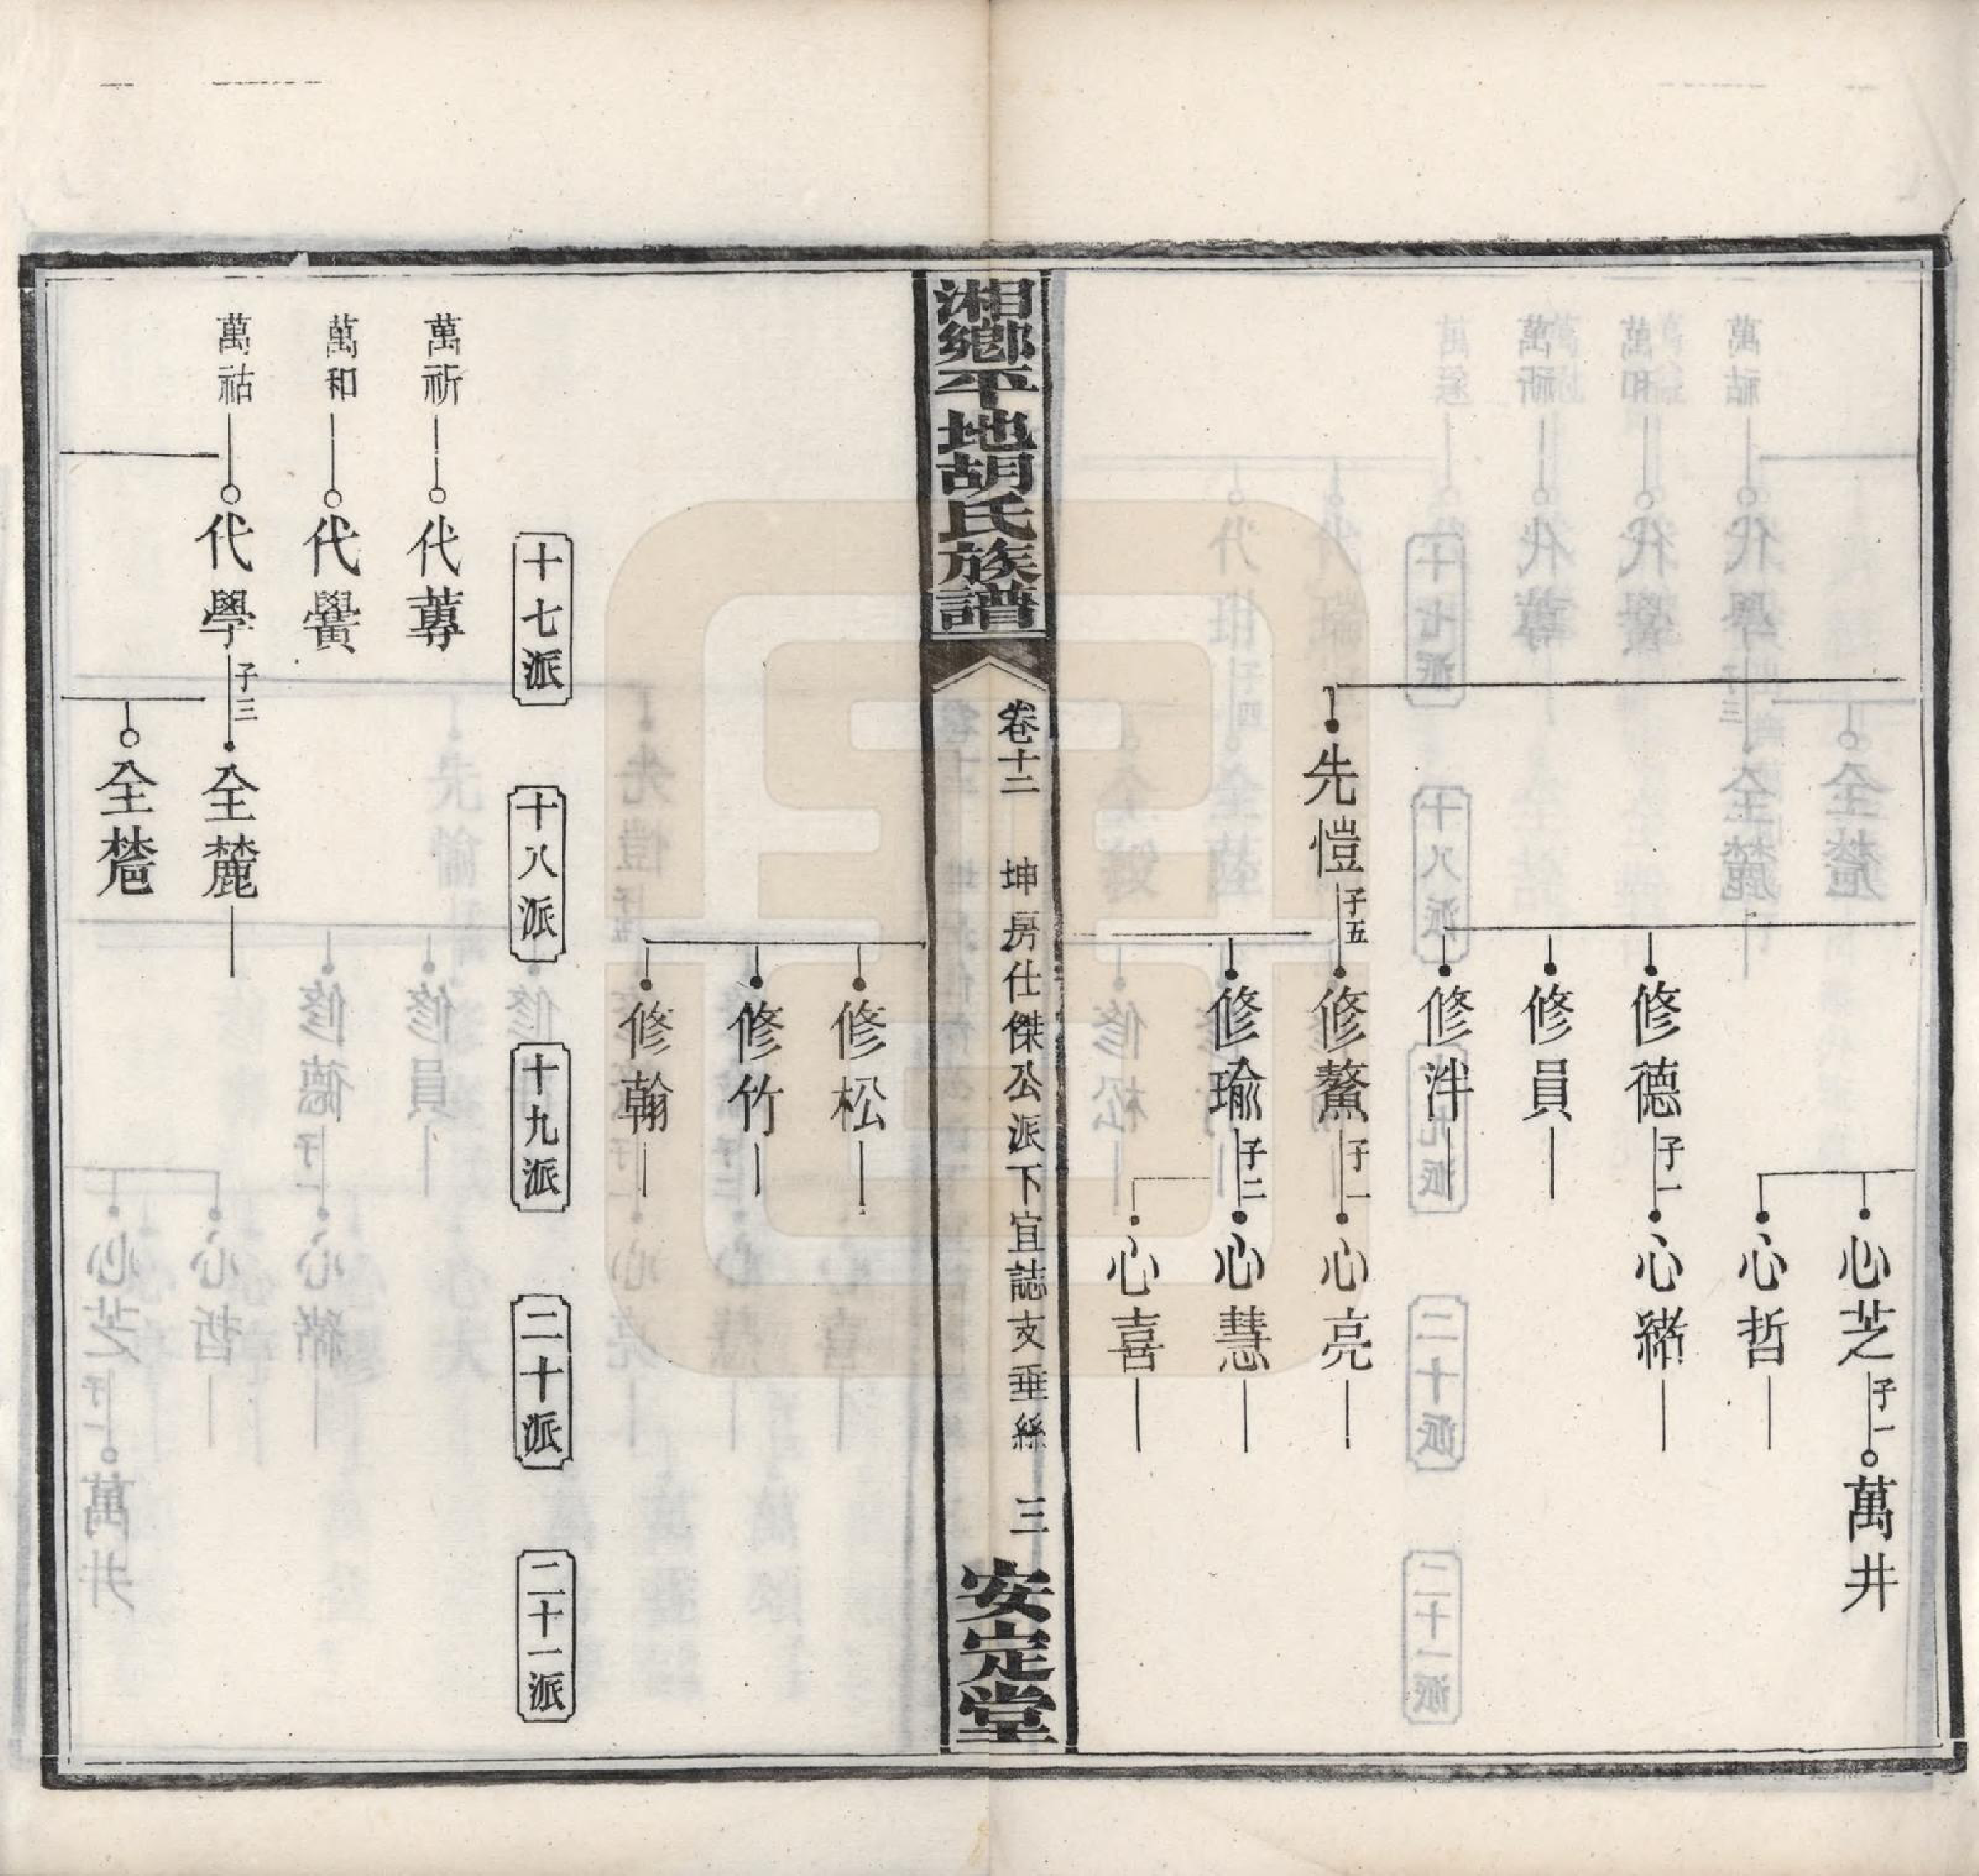 心芝子一萬井
心哲
修德子一心緒
修員
修泮
先愷子五修鰲子一心亮
修瑜子二心慧
心喜
湘鄉平地胡氏族譜
卷十二 坤房仕傑公派下宜誌支垂絲 三
安定堂
修松
修竹
修翰
十七派 十八派 十九派 二十派 二十一派
萬祈代蓴
萬和代黌
萬祜代學子三全麓
全蓖